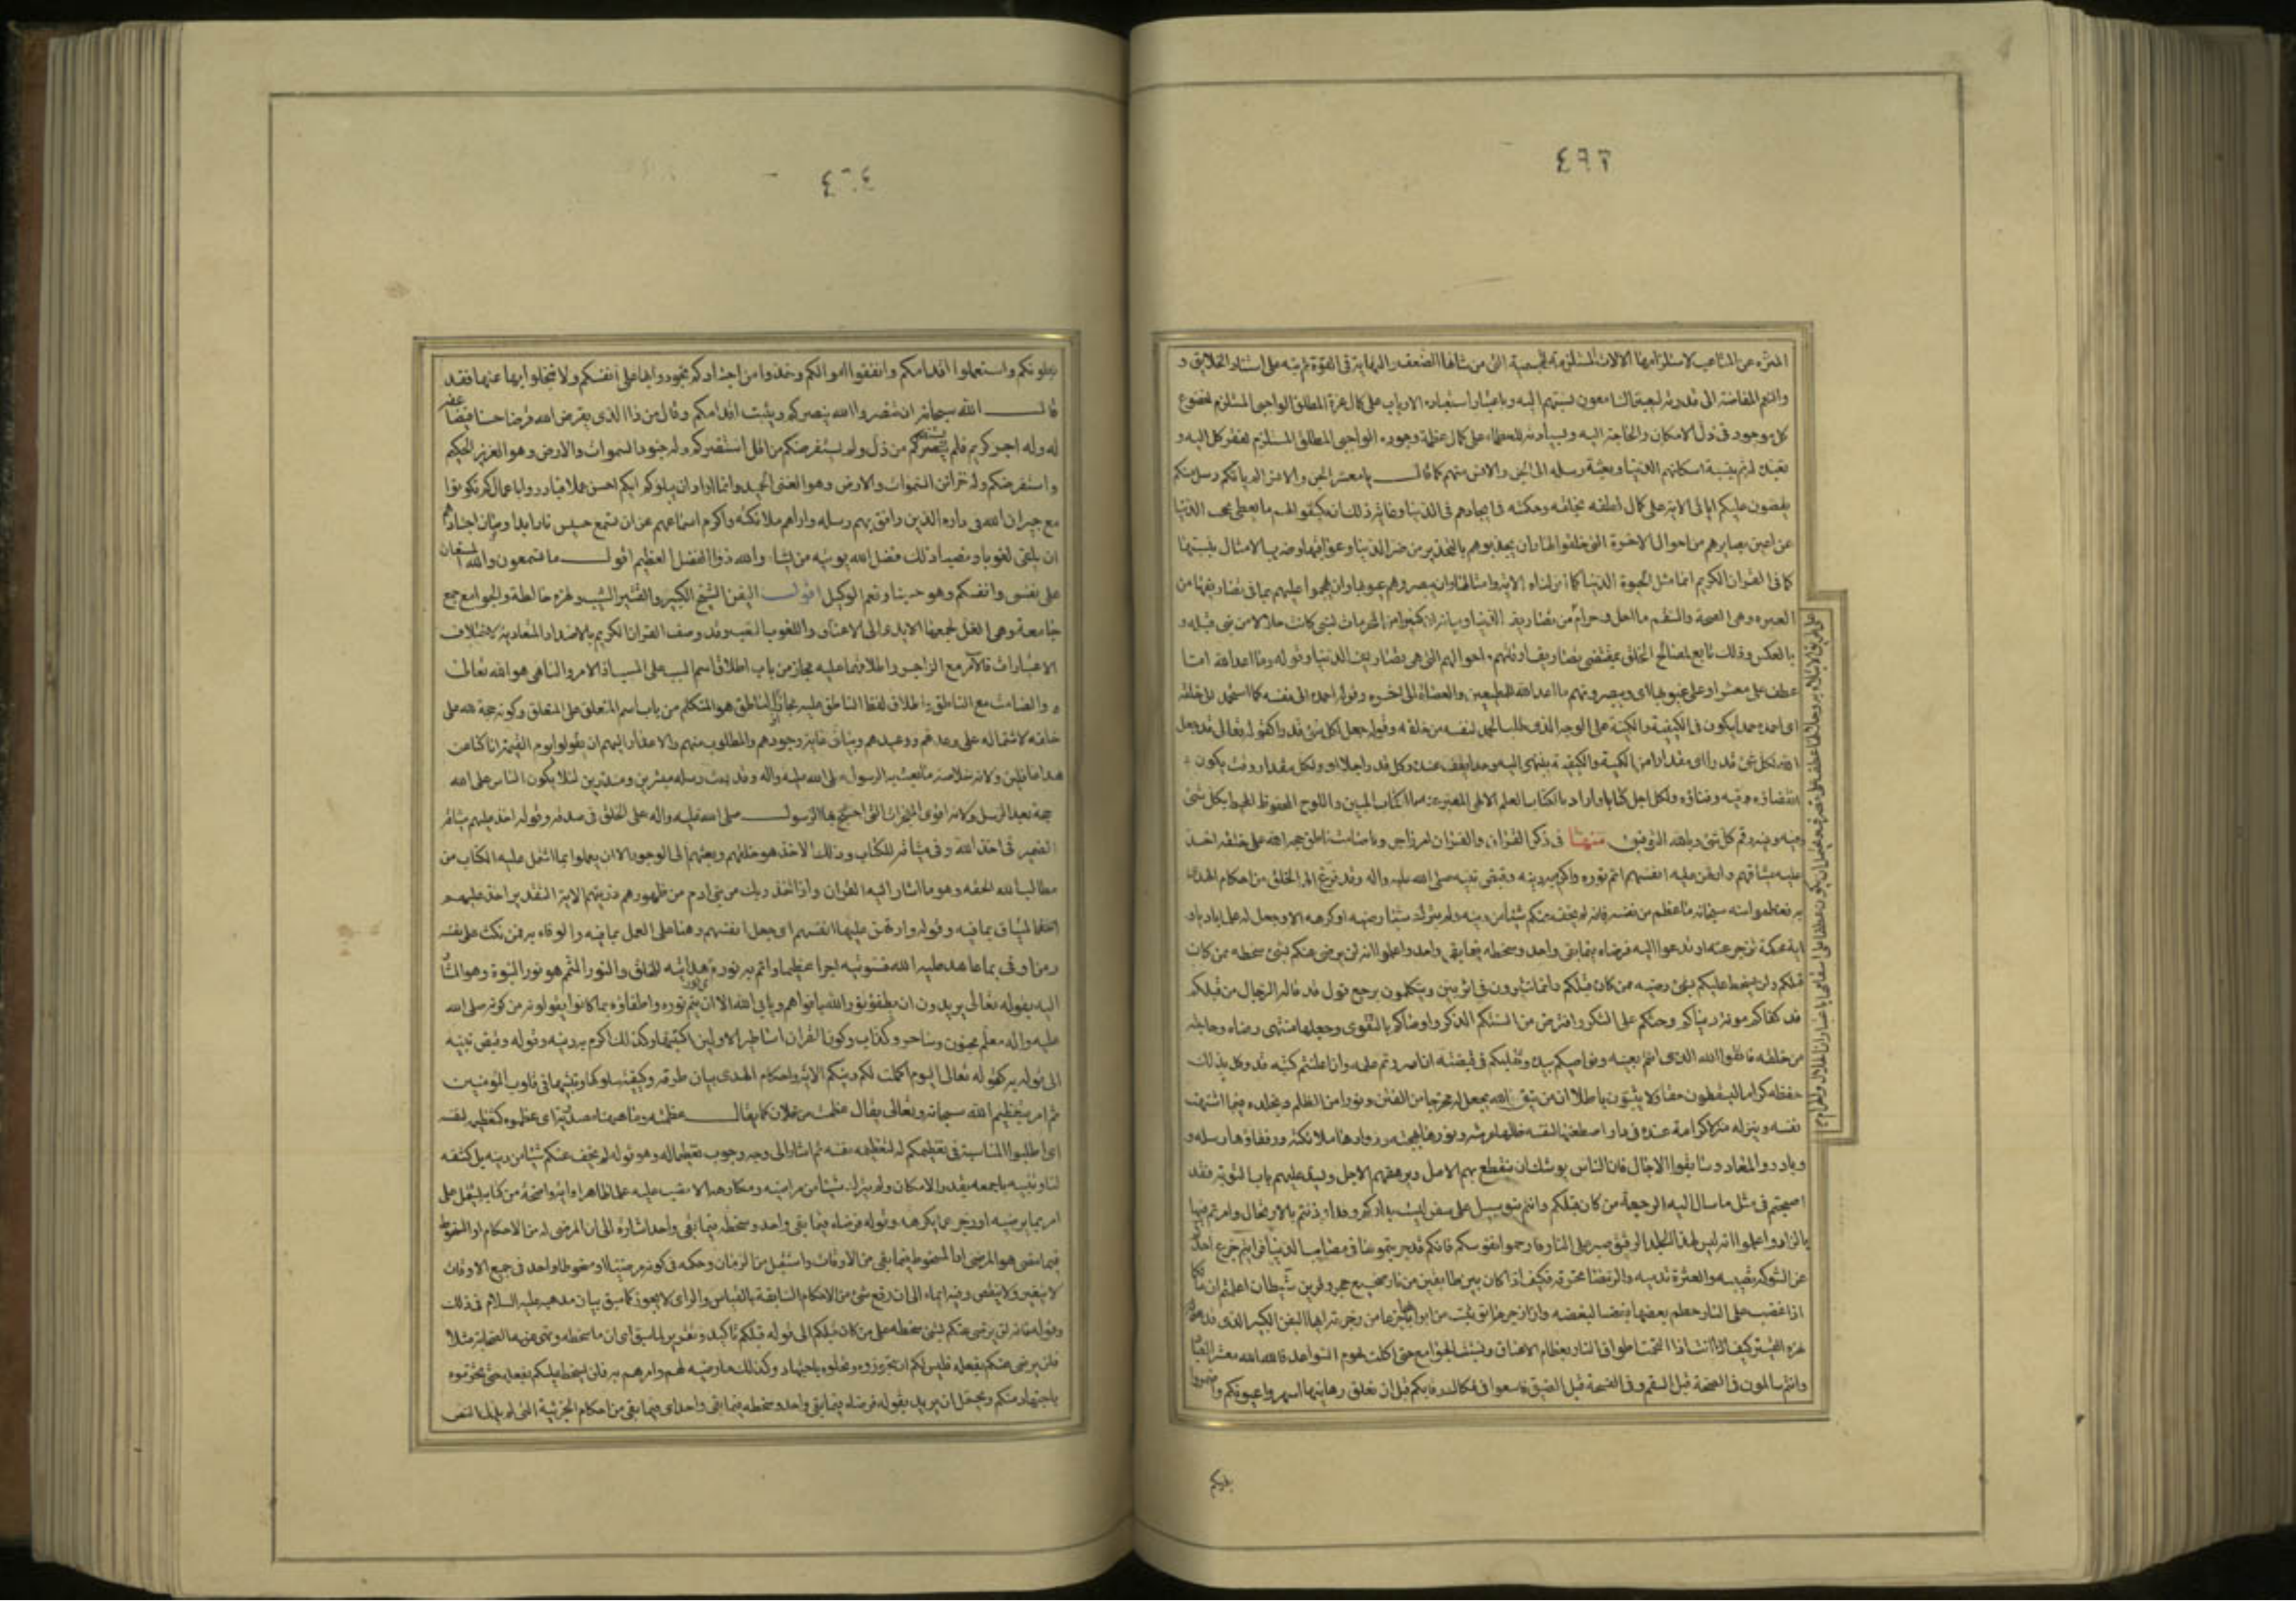 ٤٩٣
المنزه عن المشاعر لاستلزامها الالات المستلزمة للجسمية التى من شانها الضعف والنهاية فى القوة ثم نبه على استناد الخلايق و
كل موجود فى ذل الامكان والحاجة اليه وبسيادته للعظماء على كمال عظمة وجوده الواجبى المطلق المستلزم لفقر كل اليه و
وبعثة رسله الى الجن والانس منهم كما قال يا معشر الجن والانس الم ياتكم رسل منكم
يقصون عليكم اياتى الاية على كمال لطفه بخلقه وحكمته فى ايجادهم فى الدنيا
عن اعين بصايرهم من احوال الاخرة التى خلقوا لها وان يحذروهم من ضر الدنيا وعواقبها وضرب الامثال بنسبتها
كما فى القران الكريم انما مثل الحيوة الدنيا كماء انزلناه الاية وامثالها وان يبصروهم عيوبها وان يهجموا عليهم بما فى تصاريفها من
العبرة وهى الصحة والسقم وما احل وحرام من تصاريف الدنيا
بالعكس وذلك تابع لمصالح الخلق بمقتضى تصاريف اوقاتهم واحوالهم التى هى تصاريف الدنيا وقوله وما اعد الله اما
عطف على معتبر او على عيوبها اى ويبصرونهم ما اعد الله للمطيعين والعصاة الى اخره وقوله احمده الى نفسه كما استحمد الى خلقه
اى احمده حمدا يكون فى الكيفية والكمية على الوجه الذى طلب الحمد لنفسه من خلقه وقوله جعل لكل شئ قدرا كقوله تعالى قد جعل
الله لكل شئ قدرا اى مقدارا من الكمية والكيفية ينتهى اليه وحدا يقف عنده ولكل قدر اجلا اى ولكل مقدار وقت يكون
انقضاؤه فيه وفناؤه ولكل اجل كتابا واراد بالكتاب العلم الالهى المعبر عنه بالكتاب المبين واللوح المحفوظ المحيط بكل شئ
وفيه رقم كل شئ وبالله التوفيق منها فى ذكر القران فالقران امر زاجر وصامت ناطق حجة الله على خلقه اخذ
عليه ميثاقهم وارتهن عليه انفسهم اتم نوره واكرم به دينه وقبض نبيه صلى الله عليه واله وقد فرغ الى الخلق من احكام الهدى
به فعظموا منه سبحانه ما عظم من نفسه فانه لم يخف عنكم شيئا من دينه ولم يترك شيئا رضيه او كرهه الا وجعل له علما باديا و
اية محكمة تزجر عنه او تدعوا اليه فرضاه فيما بقى واحد وسخطه فيما بقى واحد واعلموا انه لن يرضى عنكم بشئ سخطه ممن كان
قبلكم ولن يسخط عليكم بشئ رضيه ممن كان قبلكم وانما تسيرون فى اثر بين وتتكلمون برجع قول قد قاله الرجال من قبلكم
قد كفاكم مونة دنياكم وحثكم على الشكر وافترض من السنتكم الذكر واوصاكم بالتقوى وجعلها منتهى رضاه وحاجته
من خلقه فاتقوا الله الذى انتم بعينه ونواصيكم بيده وتقلبكم فى قبضته ان اسررتم علمه وان اعلنتم كتبه قد وكل بذلك
حفظة كراما لا يسقطون حقا ولا يثبتون باطلا ان من يتق الله يجعل له مخرجا من الفتن ونورا من الظلم ويخلده فيما اشتهت
نفسه وينزله منزل الكرامة عنده فى دار اصطنعها لنفسه ظلها عرشه ونورها بهجته وزوارها ملائكته ورفقاؤها رسله و
وبادروا المعاد وسابقوا الاجال فان الناس يوشك ان ينقطع بهم الامل ويرهقهم الاجل ويسد عليهم باب التوبة فقد
اصبحتم فى مثل ما سال اليه الرجعة من كان قبلكم وانتم بنو سبيل على سفر ليست بداركم وقد اوذنتم بالارتحال وامرتم فيها
بالزاد واعلموا انه ليس لهذا الجلد الرقيق صبر على النار فارحموا نفوسكم فانكم قد جربتموها فى مصايب الدنيا فرايتم جزع احدكم
من الشوكة تصيبه والعثرة تدميه والرمضاء تحرقه فكيف اذا كان بين طابقين من نار ضجيع حجر وقرين شيطان اعلمتم ان مالكا
اذا غضب على النار حطم بعضها بعضا لغضبه واذا زجرها توثبت من ابوابها جزعا من زجرته ايها اليفن الكبير الذى قد لهزه
القتير كيف انت اذا التحمت اطواق النار بعظام الاعناق ونشبت الجوامع حتى اكلت لحوم السواعد فالله الله معشر العباد
وانتم سالمون فى الصحة قبل السقم وفى الفسحة قبل الضيق فاسعوا فى فكاك رقابكم قبل ان تغلق رهاينها اسهروا عيونكم واضمروا
بطونكم
٤٦٤
بطونكم واستعملوا اقدامكم وانفقوا اموالكم وخذوا من اجسادكم تجودوا بها على انفسكم ولا تبخلوا بها عنها فقد
قال الله سبحانه ان تنصروا الله ينصركم ويثبت اقدامكم وقال من ذا الذى يقرض الله قرضا حسنا فيضاعفه
له وله اجر كريم فلم يستنصركم من ذل ولم يستقرضكم من قل استنصركم وله جنود السموات والارض وهو العزيز الحكيم
واستقرضكم وله خزائن السموات والارض وهو الغنى الحميد وانما اراد ان يبلوكم ايكم احسن عملا فبادروا باعمالكم تكونوا
مع جيران الله فى داره الذين رافق بهم رسله وازارهم ملائكته واكرم اسماعهم عن ان تسمع حسيس نار ابدا وصان اجسادهم
ان يلقى لغوبا ونصبا ذلك فضل الله يوتيه من يشاء والله ذو الفضل العظيم اقول ما تسمعون والله المستعان
على نفسى وانفسكم وهو حسبنا ونعم الوكيل اقول اليفن الشيخ الكبير والقتير الشيب ولهزه خالطه والجوامع جمع
جامعة وهى الغل لجمعها الايدى الى الاعناق واللغوب التعب وقد وصف القران الكريم بالاضداد المتعادية لاختلاف
الاعتبارات فالامر مع الزاجر واطلاقهما عليه مجاز من باب اطلاق اسم السبب على المسبب اذ الامر والناهى هو الله تعالى
والصامت مع الناطق واطلاق لفظ الناطق عليه مجاز اذ الناطق هو المتكلم من باب اسم المتعلق على المتعلق وكونه حجة لله على
خلقه لاشتماله على وعدهم ووعيدهم وبيان غاية وجودهم والمطلوب منهم والاعذار اليهم ان يقولوا يوم القيمة انا كنا عن
هذا غافلين ولانه خلاصة ما بعث به الرسول صلى الله عليه واله وقد بعث رسله مبشرين ومنذرين لئلا يكون للناس على الله
حجة بعد الرسل ولانه اقوى المعجزات التى احتج بها الرسول صلى الله عليه واله على الخلق فى صدقه وقوله اخذ عليهم ميثاقه
الضمير فى اخذ لله وفى ميثاقه للكتاب وذلك الاخذ هو خلقهم وبعثهم الى الوجود الا ان يعملوا بما اشتمل عليه الكتاب من
مطالب الله الحقه وهو ما اشار اليه القران واذ اخذ ربك من بنى ادم من ظهورهم ذريتهم الاية التقدير اخذ عليهم
الميثاق بما فيه وقوله وارتهن عليها انفسهم اى جعل انفسهم رهنا على العمل بما فيه والوفاء به فمن نكث فانما ينكث على نفسه
ومن اوفى بما عاهد عليه الله فسنوتيه اجرا عظيما واتم به نوره اى نور هدايته للخلق والنور المتمم هو نور النبوة وهو المشار
اليه بقوله تعالى يريدون ان يطفؤا نور الله بافواههم ويابى الله الا ان يتم نوره واطفاؤه بما كانوا يقولونه من كونه صلى الله
عليه واله معلم مجنون وساحر وكذاب وكون القران اساطير الاولين اكتتبها وكذلك اكرم به دينه وقوله وقبض نبيه
الى قوله به كقوله تعالى اليوم اكملت لكم دينكم الاية واحكام الهدى بيان طرقه وكيفية سلوكها وتثبيتها فى قلوب المؤمنين
ثم امر بتعظيم الله سبحانه وتعالى يقال عظمت من فلان كما يقال عظمته وما هيهنا مصدرية اى عظموه كتعظيمه نفسه
اى اطلبوا المناسبة فى تعظيمكم له لتعظيمه نفسه ثم اشار الى وجه وجوب تعظيمنا له وهو قوله لم يخف عنكم شيئا من دينه بل كشفه
لنا وبينه باجمعه بقدر الامكان ولم يترك شيئا من مراضيه ومكارهه الا نصب عليه علما ظاهرا واية واضحة من كتابه يشتمل على
امر بما يرضيه او زجر عما يكرهه وقوله فرضاه فيما بقى واحد وسخطه فيما بقى واحد اشارة الى ان المرضى له من الاحكام او المسخوط
فيما مضى هو المرضى او المسخوط فيما بقى من الاوقات واستقبل من الزمان وحكمه فى كونه مرضيا او مسخوطا واحد فى جميع الاوقات
لا يتغير ولا ينقص وفيه ايماء الى ان رفع شئ من الاحكام السابقة بالقياس والراى لا يجوز كما سبق بيان مذهبه عليه السلام فى ذلك
وقوله فانه لن يرضى عنكم بشئ سخطه على من كان قبلكم الى قوله قبلكم تاكيد وتقرير لما سبق اى ان ما سخطه ونهى عنه الصحابة مثلا
فلن يرضى عنكم بفعله فليس لكم ان تجوزوه وتحلوه باجتهاد وكذلك ما رضيه لهم وامرهم به فلن يسخط عليكم بفعله حتى تحرموه
باجتهاد منكم ويحتمل ان يريد بقوله فرضاه فيما بقى واحد وسخطه فيما بقى واحد اى فيما بقى من احكام الجزئية التى لم